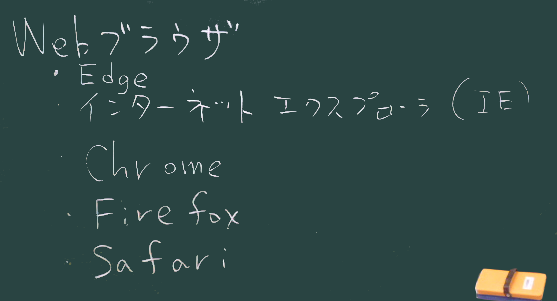 Webブラウザ
・Edge
・インターネット エクスプローラ (IE)
・Chrome
・Firefox
・Safari